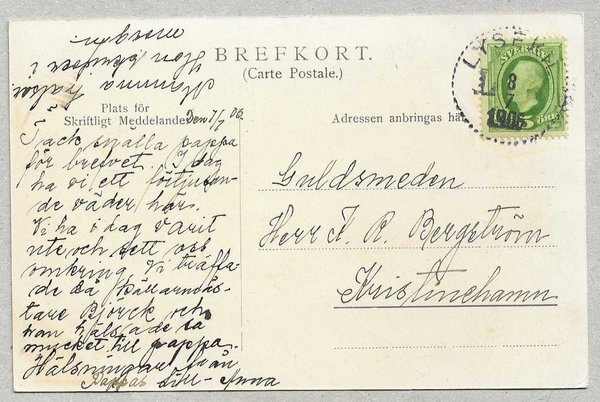 BREFKORT.
(Carte Postale.)
Plats för
Skriftligt Meddelande
Adressen anbringas här
LYSEKIL
8
7
1906
SVERIGE
ÖRE
Den 7/7 06.
Tack snälla pappa
för brevet. I dag
ha vi ett förtjusan-
de väder här.
Vi ha i dag varit
ute och sett oss
omkring. Vi träffa
de då Källarmäs-
tare Björck och
han hälsade så
mycket till pappa.
Hälsningar från
Pappas lilla Anna
Mamma
Hon kommer i
morgon
Guldsmeden
Herr F. R. Bergström
Kristinehamn